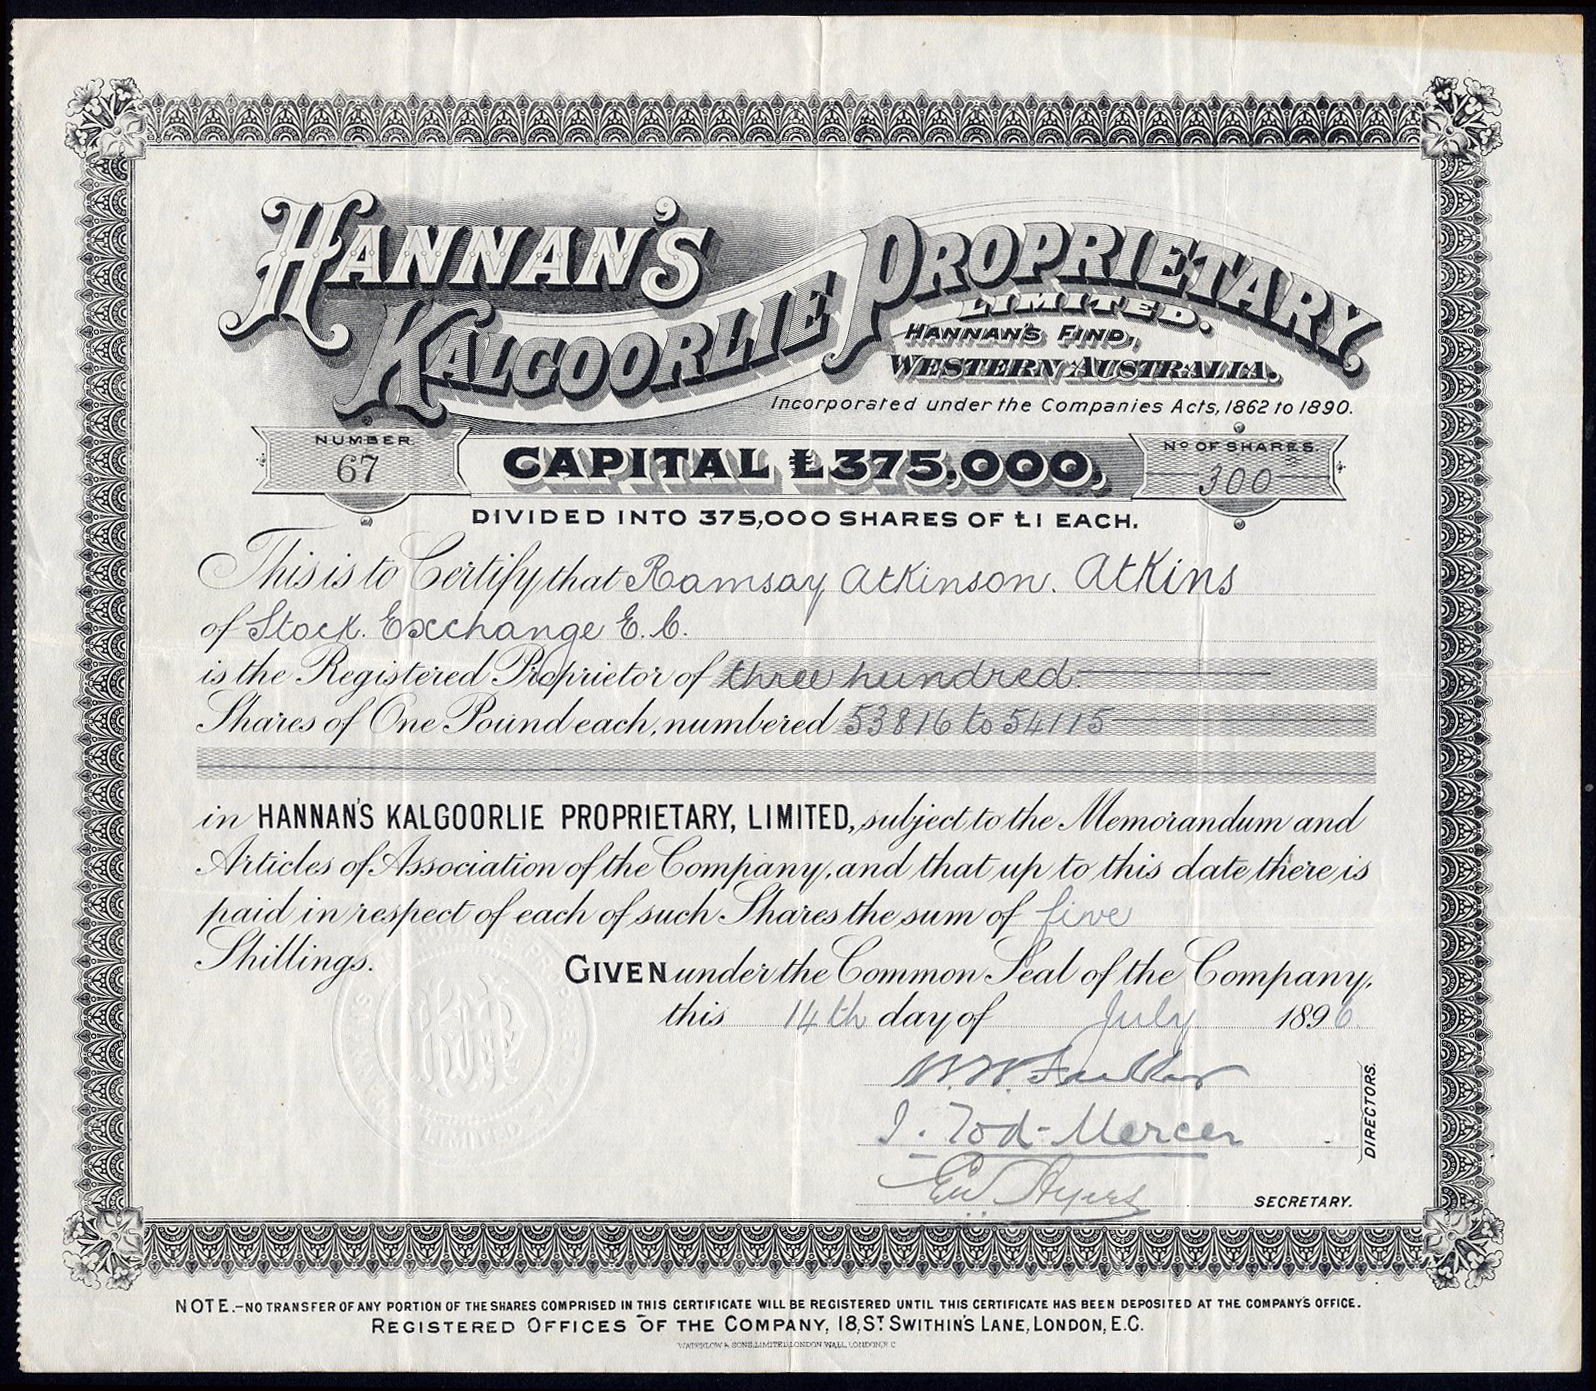 HANNAN'S
KALGOORLIE PROPRIETARY
LIMITED.
HANNAN'S FIND,
WESTERN AUSTRALIA.
Incorporated under the Companies Acts, 1862 to 1890.
NUMBER
67
CAPITAL £375,000,
No OF SHARES.
300
DIVIDED INTO 375,000 SHARES OF £1 EACH.
This is to Certify that Ramsay Atkinson. Atkins
of Stock. Exchange E.C.
is the Registered Proprietor of three hundred
Shares of One Pound each, numbered 53816 to 54115
in HANNAN'S KALGOORLIE PROPRIETARY, LIMITED, subject to the Memorandum and
Articles of Association of the Company, and that up to this date there is
paid in respect of each of such Shares the sum of five
Shillings.
GIVEN under the Common Seal of the Company,
this 14th day of July 1896
J. Tod-Mercer
DIRECTORS.
Ayers
SECRETARY.
LIMITED
NOTE.-NO TRANSFER OF ANY PORTION OF THE SHARES COMPRISED IN THIS CERTIFICATE WILL BE REGISTERED UNTIL THIS CERTIFICATE HAS BEEN DEPOSITED AT THE COMPANY'S OFFICE.
REGISTERED OFFICES OF THE COMPANY, 18, ST SWITHIN'S LANE, LONDON, E.C.
WATERLOW & SONS LIMITED, LONDON WALL, LONDON, E.C